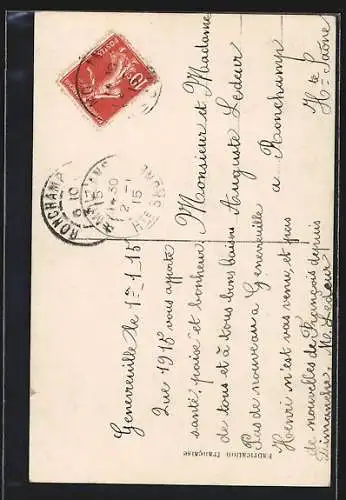 Genevreuille le 1er-1-15
Que 1915 vous apporte
santé, paix et bonheur
de tous et à tous bons baisers
Pas de nouveau à Genevreuille
Henri n'est pas venu, et pas
de nouvelles de François depuis
Dimanche. M. Ledeur
Monsieur et Madame
Auguste Ledeur
à Ronchamp
Hte Saône
RONCHAMP
15
HTE SAONE
10
POSTES
Fabrication française